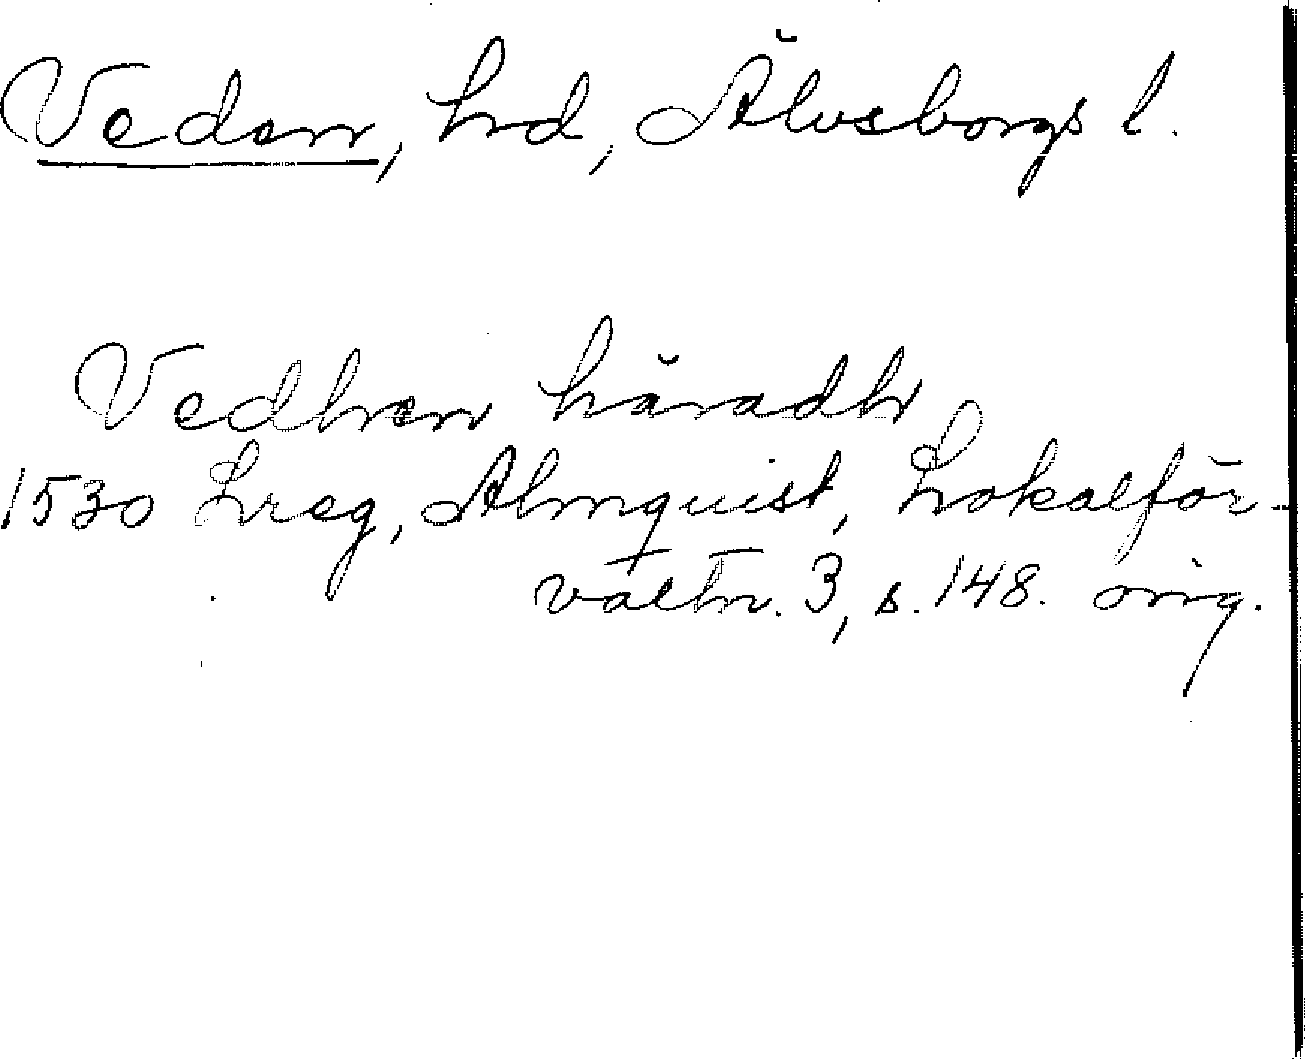 Veden, hrd, Älvsborgs l.
Vedhen häradh
1530 Lreg, Almquist, Lokalför-
valtn. 3, s. 148. orig.